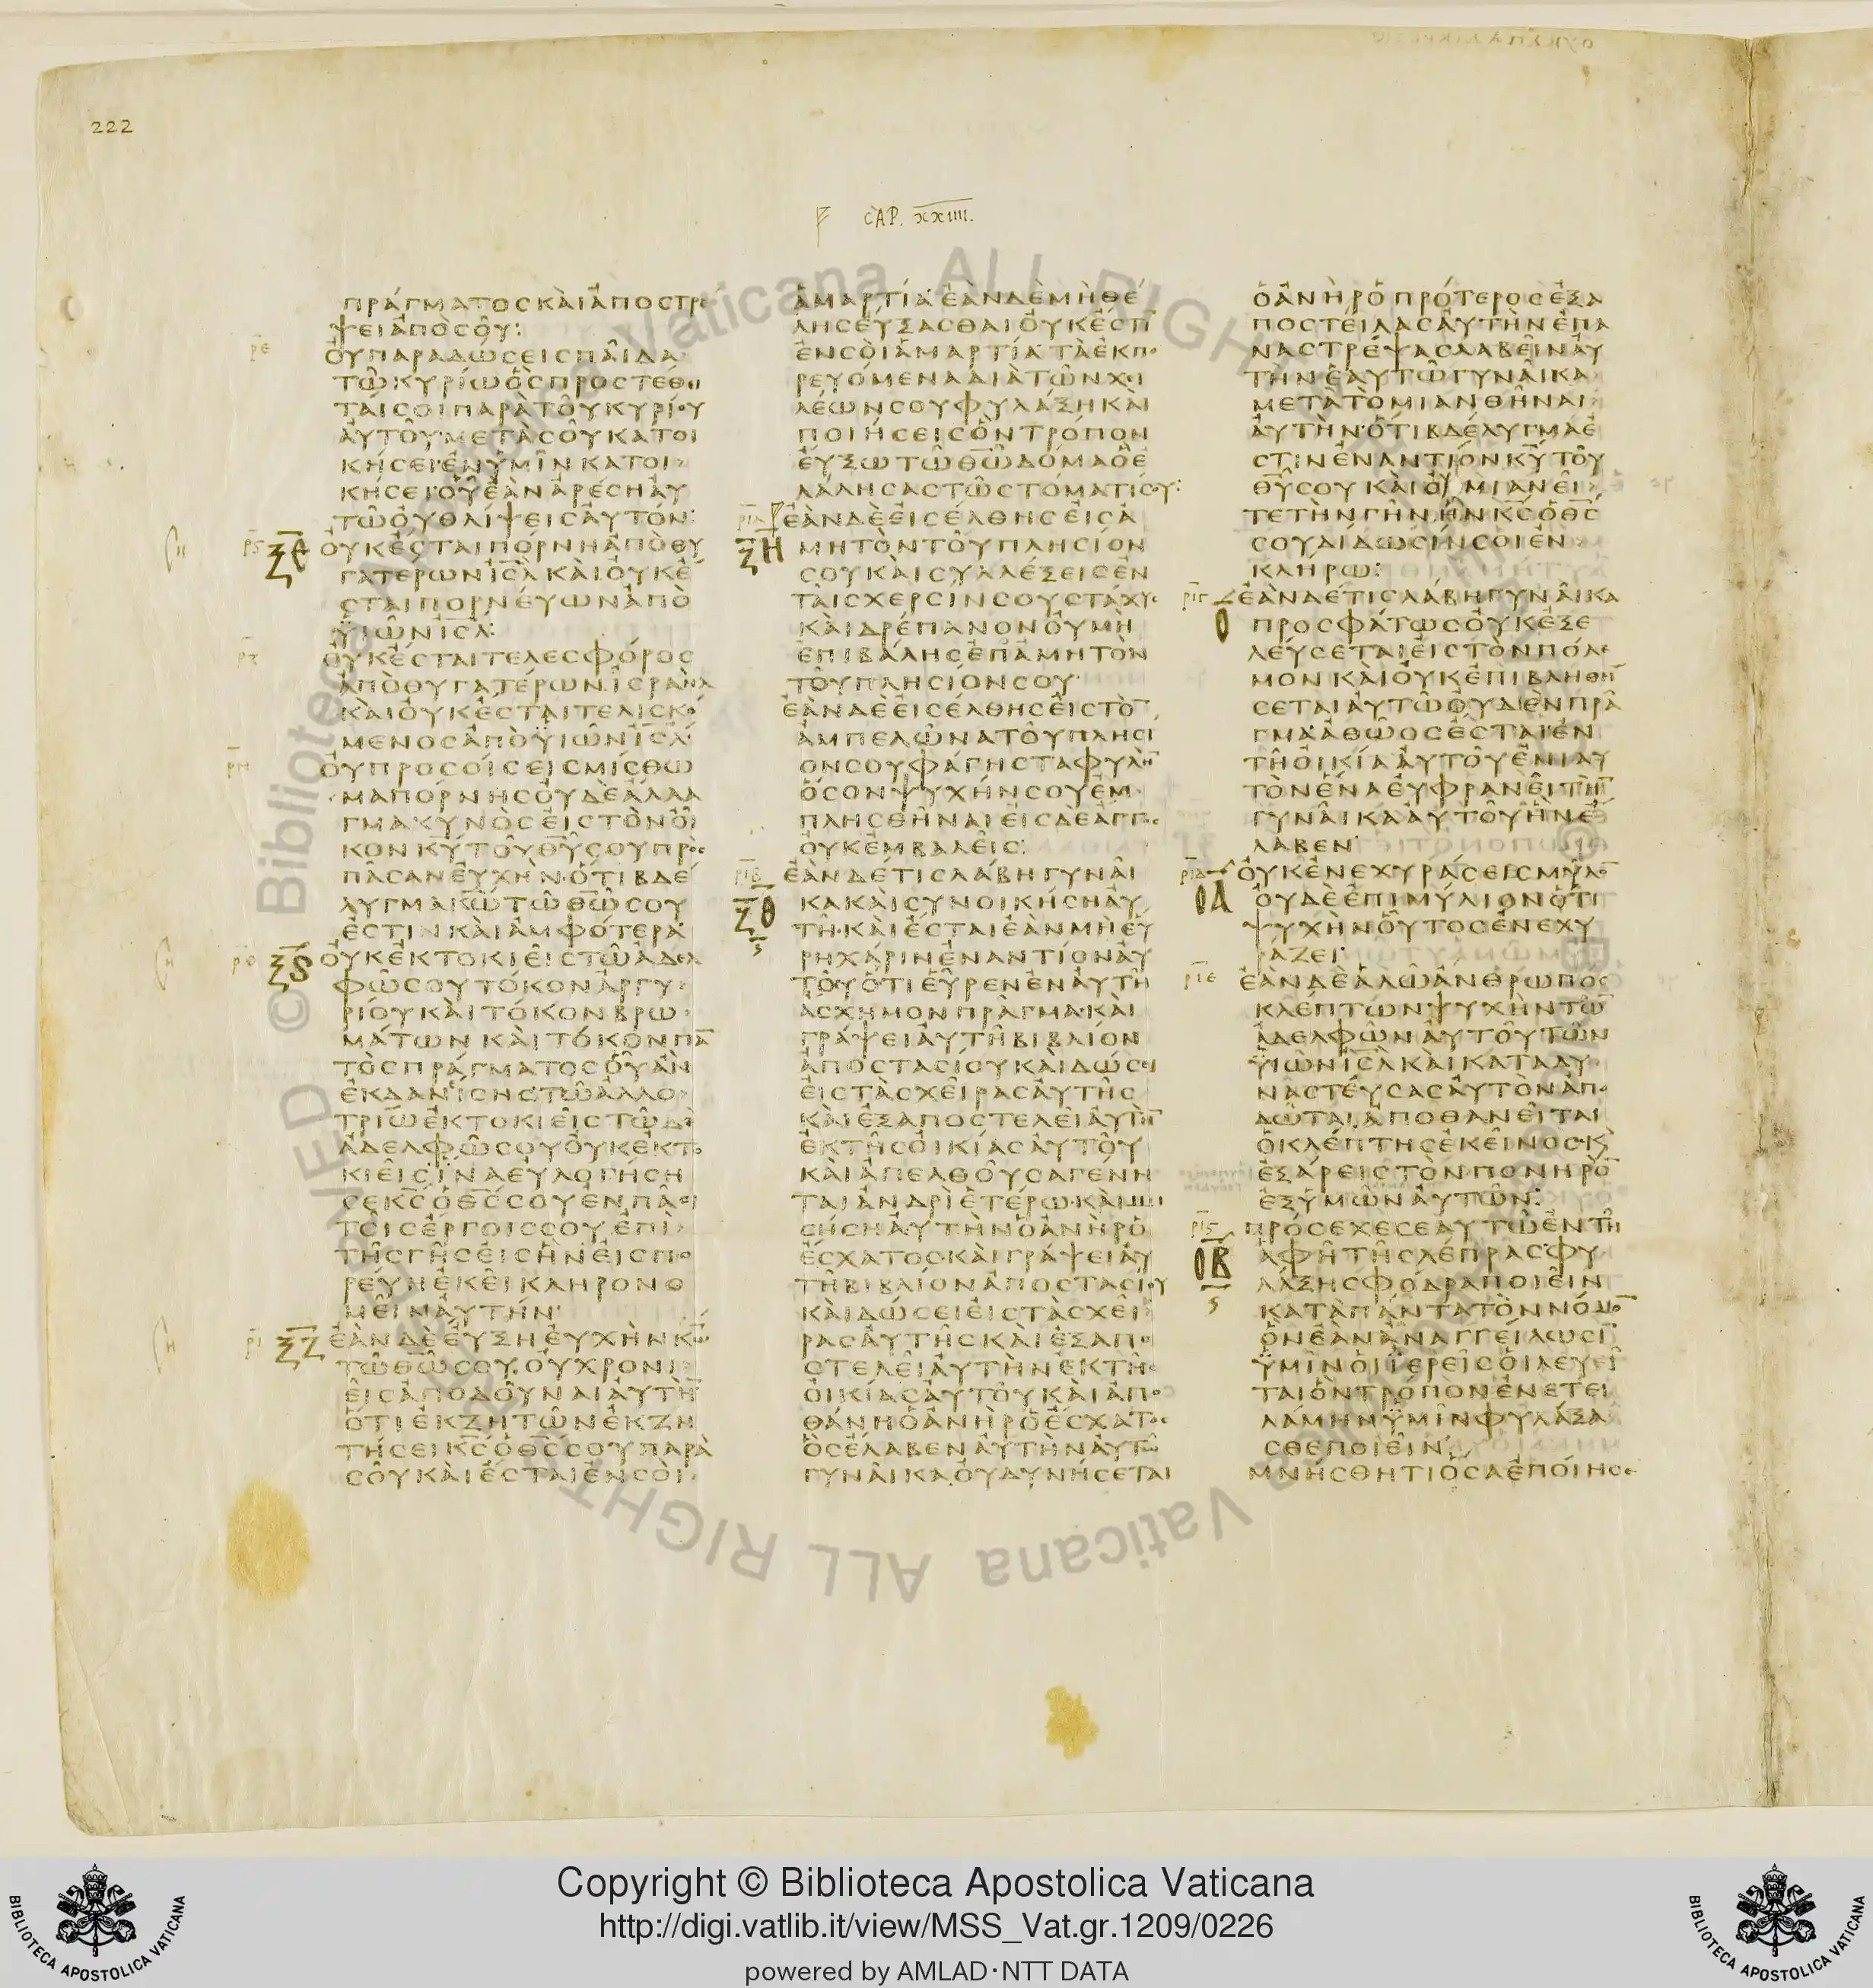 222
CAP. XXIIII.
ΠΡΑΓΜΑΤΟϹΚΑΙΑΠΟϹΤΡΕ
ΨΕΙΑΠΟϹΟΥ:
ΟΥΠΑΡΑΔΩϹΕΙϹΠΑΙΔΑ
ΤΩΚΥΡΙΩΟϹΠΡΟϹΤΕΘΙ
ΤΑΙϹΟΙΠΑΡΑΤΟΥΚΥΡΙΟΥ
ΑΥΤΟΥ·ΜΕΤΑϹΟΥΚΑΤΟΙ
ΚΗϹΕΙ·ΕΝΥΜΙΝΚΑΤΟΙ
ΚΗϹΕΙ·ΟΥΕΑΝΑΡΕϹΗΑΥ
ΤΩΟΥΘΛΙΨΕΙϹΑΥΤΟΝ:
ΟΥΚΕϹΤΑΙΠΟΡΝΗΑΠΟΘΥ
ΓΑΤΕΡΩΝΙϹΛΚΑΙΟΥΚΕ
ϹΤΑΙΠΟΡΝΕΥΩΝΑΠΟ
ΥΙΩΝΙϹΛ:
ΟΥΚΕϹΤΑΙΤΕΛΕϹΦΟΡΟϹ
ΑΠΟΘΥΓΑΤΕΡΩΝΙϹΡΑΗΛ
ΚΑΙΟΥΚΕϹΤΑΙΤΕΛΙϹΚΟ
ΜΕΝΟϹΑΠΟΥΙΩΝΙϹΛ·
ΟΥΠΡΟϹΟΙϹΕΙϹΜΙϹΘΩ
ΜΑΠΟΡΝΗϹΟΥΔΕΑΛΛΑ
ΓΜΑΚΥΝΟϹΕΙϹΤΟΝΟΙ
ΚΟΝΚΥΤΟΥΘΥϹΟΥΠΡΟϹ
ΠΑϹΑΝΕΥΧΗΝ·ΟΤΙΒΔΕ
ΛΥΓΜΑΚΩΤΩΘΩϹΟΥ
ΕϹΤΙΝΚΑΙΑΜΦΟΤΕΡΑ·
ΟΥΚΕΚΤΟΚΙΕΙϹΤΩΑΔΕΛ
ΦΩϹΟΥΤΟΚΟΝΑΡΓΥ
ΡΙΟΥΚΑΙΤΟΚΟΝΒΡΩ
ΜΑΤΩΝΚΑΙΤΟΚΟΝΠΑ̅
ΤΟϹΠΡΑΓΜΑΤΟϹΟΥΑΝ
ΕΚΔΑΝΙϹΗϹ·ΤΩΑΛΛΟ
ΤΡΙΩΕΚΤΟΚΙΕΙϹΤΩΔΕ
ΑΔΕΛΦΩϹΟΥΟΥΚΕΚΤΟ
ΚΙΕΙϹ·ΙΝΑΕΥΛΟΓΗϹΗ
ϹΕΚϹΟΘϹϹΟΥΕΝΠΑϹΙ
ΤΟΙϹΕΡΓΟΙϹϹΟΥΕΠΙ
ΤΗϹΓΗϹΕΙϹΗΝΕΙϹΠΟ
ΡΕΥΗΕΚΕΙΚΛΗΡΟΝΟ
ΜΕΙΝΑΥΤΗΝ·
ΕΑΝΔΕΕΥΞΗΕΥΧΗΝΚΩ
ΤΩΘΩϹΟΥ·ΟΥΧΡΟΝΙ
ΕΙϹΑΠΟΔΟΥΝΑΙΑΥΤΗ̅
ΟΤΙΕΚΖΗΤΩΝΕΚΖΗ
ΤΗϹΕΙΚϹΟΘϹϹΟΥΠΑΡΑ
ϹΟΥΚΑΙΕϹΤΑΙΕΝϹΟΙ
ΑΜΑΡΤΙΑ·ΕΑΝΔΕΜΗΘΕ
ΛΗϹΕΥΞΑϹΘΑΙΟΥΚΕϹΤΙ̅
ΕΝϹΟΙΑΜΑΡΤΙΑ·ΤΑΕΚΠΟ
ΡΕΥΟΜΕΝΑΔΙΑΤΩΝΧΕΙ
ΛΕΩΝϹΟΥΦΥΛΑΞΗΚΑΙ
ΠΟΙΗϹΕΙϹΟΝΤΡΟΠΟΝ
ΕΥΞΩΤΩΘΩΔΟΜΑΟΕ
ΛΑΛΗϹΑϹΤΩϹΤΟΜΑΤΙϹΟΥ:
ΕΑΝΔΕΕΙϹΕΛΘΗϹΕΙϹΑ
ΜΗΤΟΝΤΟΥΠΛΗϹΙΟΝ
ϹΟΥΚΑΙϹΥΛΛΕΞΕΙϹΕΝ
ΤΑΙϹΧΕΡϹΙΝϹΟΥϹΤΑΧΥϹ
ΚΑΙΔΡΕΠΑΝΟΝΟΥΜΗ
ΕΠΙΒΑΛΗϹΕΠΑΜΗΤΟΝ
ΤΟΥΠΛΗϹΙΟΝϹΟΥ·
ΕΑΝΔΕΕΙϹΕΛΘΗϹΕΙϹΤΟ̅
ΑΜΠΕΛΩΝΑΤΟΥΠΛΗϹΙ
ΟΝϹΟΥΦΑΓΗϹΤΑΦΥΛΗ̅
ΟϹΟΝΨΥΧΗΝϹΟΥΕΜ
ΠΛΗϹΘΗΝΑΙΕΙϹΔΕΑΓΓΟϹ
ΟΥΚΕΜΒΑΛΕΙϹ:
ΕΑΝΔΕΤΙϹΛΑΒΗΓΥΝΑΙ
ΚΑΚΑΙϹΥΝΟΙΚΗϹΗΑΥ
ΤΗ·ΚΑΙΕϹΤΑΙΕΑΝΜΗΕΥ
ΡΗΧΑΡΙΝΕΝΑΝΤΙΟΝΑΥ
ΤΟΥΟΤΙΕΥΡΕΝΕΝΑΥΤΗ
ΑϹΧΗΜΟΝΠΡΑΓΜΑ·ΚΑΙ
ΓΡΑΨΕΙΑΥΤΗΒΙΒΛΙΟΝ
ΑΠΟϹΤΑϹΙΟΥΚΑΙΔΩϹΕΙ
ΕΙϹΤΑϹΧΕΙΡΑϹΑΥΤΗϹ
ΚΑΙΕΞΑΠΟϹΤΕΛΕΙΑΥΤΗ̅
ΕΚΤΗϹΟΙΚΙΑϹΑΥΤΟΥ
ΚΑΙΑΠΕΛΘΟΥϹΑΓΕΝΗ
ΤΑΙΑΝΔΡΙΕΤΕΡΩ·ΚΑΙΜΙ
ϹΗϹΗΑΥΤΗΝΟΑΝΗΡΟ
ΕϹΧΑΤΟϹ·ΚΑΙΓΡΑΨΕΙΑΥ
ΤΗΒΙΒΛΙΟΝΑΠΟϹΤΑϹΙΟΥ
ΚΑΙΔΩϹΕΙΕΙϹΤΑϹΧΕΙ
ΡΑϹΑΥΤΗϹΚΑΙΕΞΑΠΟ
ϹΤΕΛΕΙΑΥΤΗΝΕΚΤΗϹ
ΟΙΚΙΑϹΑΥΤΟΥΚΑΙΑΠΟ
ΘΑΝΗΟΑΝΗΡΟΕϹΧΑΤΟϹ
ΟϹΕΛΑΒΕΝΑΥΤΗΝΑΥΤΩ
ΓΥΝΑΙΚΑΟΥΔΥΝΗϹΕΤΑΙ
ΟΑΝΗΡΟΠΡΟΤΕΡΟϹΕΞΑ
ΠΟϹΤΕΙΛΑϹΑΥΤΗΝΕΠΑ
ΝΑϹΤΡΕΨΑϹΛΑΒΕΙΝΑΥ
ΤΗΝΕΑΥΤΩΓΥΝΑΙΚΑ
ΜΕΤΑΤΟΜΙΑΝΘΗΝΑΙ
ΑΥΤΗΝ·ΟΤΙΒΔΕΛΥΓΜΑΕ
ϹΤΙΝΕΝΑΝΤΙΟΝΚΥΤΟΥ
ΘΥϹΟΥΚΑΙΟΥΜΙΑΝΕΙ
ΤΕΤΗΝΓΗΝΗΝΚϹΟΘϹ
ϹΟΥΔΙΔΩϹΙΝϹΟΙΕΝ
ΚΛΗΡΩ:
ΕΑΝΔΕΤΙϹΛΑΒΗΓΥΝΑΙΚΑ
ΠΡΟϹΦΑΤΩϹΟΥΚΕΞΕ
ΛΕΥϹΕΤΑΙΕΙϹΤΟΝΠΟΛΕ
ΜΟΝΚΑΙΟΥΚΕΠΙΒΛΗΘΗ
ϹΕΤΑΙΑΥΤΩΟΥΔΕΝΠΡΑ
ΓΜΑ·ΑΘΩΟϹΕϹΤΑΙΕΝ
ΤΗΟΙΚΙΑΑΥΤΟΥΕΝΙΑΥ
ΤΟΝΕΝΑΕΥΦΡΑΝΕΙΤΗ̅
ΓΥΝΑΙΚΑΑΥΤΟΥΗΝΕ
ΛΑΒΕΝ·
ΟΥΚΕΝΕΧΥΡΑϹΕΙϹΜΥΛΟ̅
ΟΥΔΕΕΠΙΜΥΛΙΟΝΟΤΙ
ΨΥΧΗΝΟΥΤΟϹΕΝΕΧΥ
ΡΑΖΕΙ·
ΕΑΝΔΕΑΛΩΑΝΘΡΩΠΟϹ
ΚΛΕΠΤΩΝΨΥΧΗΝΤΩ̅
ΑΔΕΛΦΩΝΑΥΤΟΥΤΩΝ
ΥΙΩΝΙϹΛΚΑΙΚΑΤΑΔΥ
ΝΑϹΤΕΥϹΑϹΑΥΤΟΝΑΠΟ
ΔΩΤΑΙΑΠΟΘΑΝΕΙΤΑΙ
ΟΚΛΕΠΤΗϹΕΚΕΙΝΟϹ·Κ
ΕΞΑΡΕΙϹΤΟΝΠΟΝΗΡΟ̅
ΕΞΥΜΩΝΑΥΤΩΝ:
ΠΡΟϹΕΧΕϹΕΑΥΤΩΕΝΤΗ
ΑΦΗΤΗϹΛΕΠΡΑϹ·ΦΥ
ΛΑΞΗϹΦΟΔΡΑΠΟΙΕΙΝ
ΚΑΤΑΠΑΝΤΑΤΟΝΝΟΜΟ̅
ΟΝΕΑΝΑΝΑΓΓΕΙΛΩϹΙ̅
ΥΜΙΝΟΙΙΕΡΕΙϹΟΙΛΕΥΕΙ
ΤΑΙΟΝΤΡΟΠΟΝΕΝΕΤΕΙ
ΛΑΜΗΝΥΜΙΝΦΥΛΑΞΑ
ϹΘΕΠΟΙΕΙΝ·
ΜΝΗϹΘΗΤΙΟϹΑΕΠΟΙΗϹΕ
Copyright © Biblioteca Apostolica Vaticana
http://digi.vatlib.it/view/MSS_Vat.gr.1209/0226
powered by AMLAD·NTT DATA
BIBLIOTECA APOSTOLICA VATICANA
BIBLIOTECA APOSTOLICA VATICANA